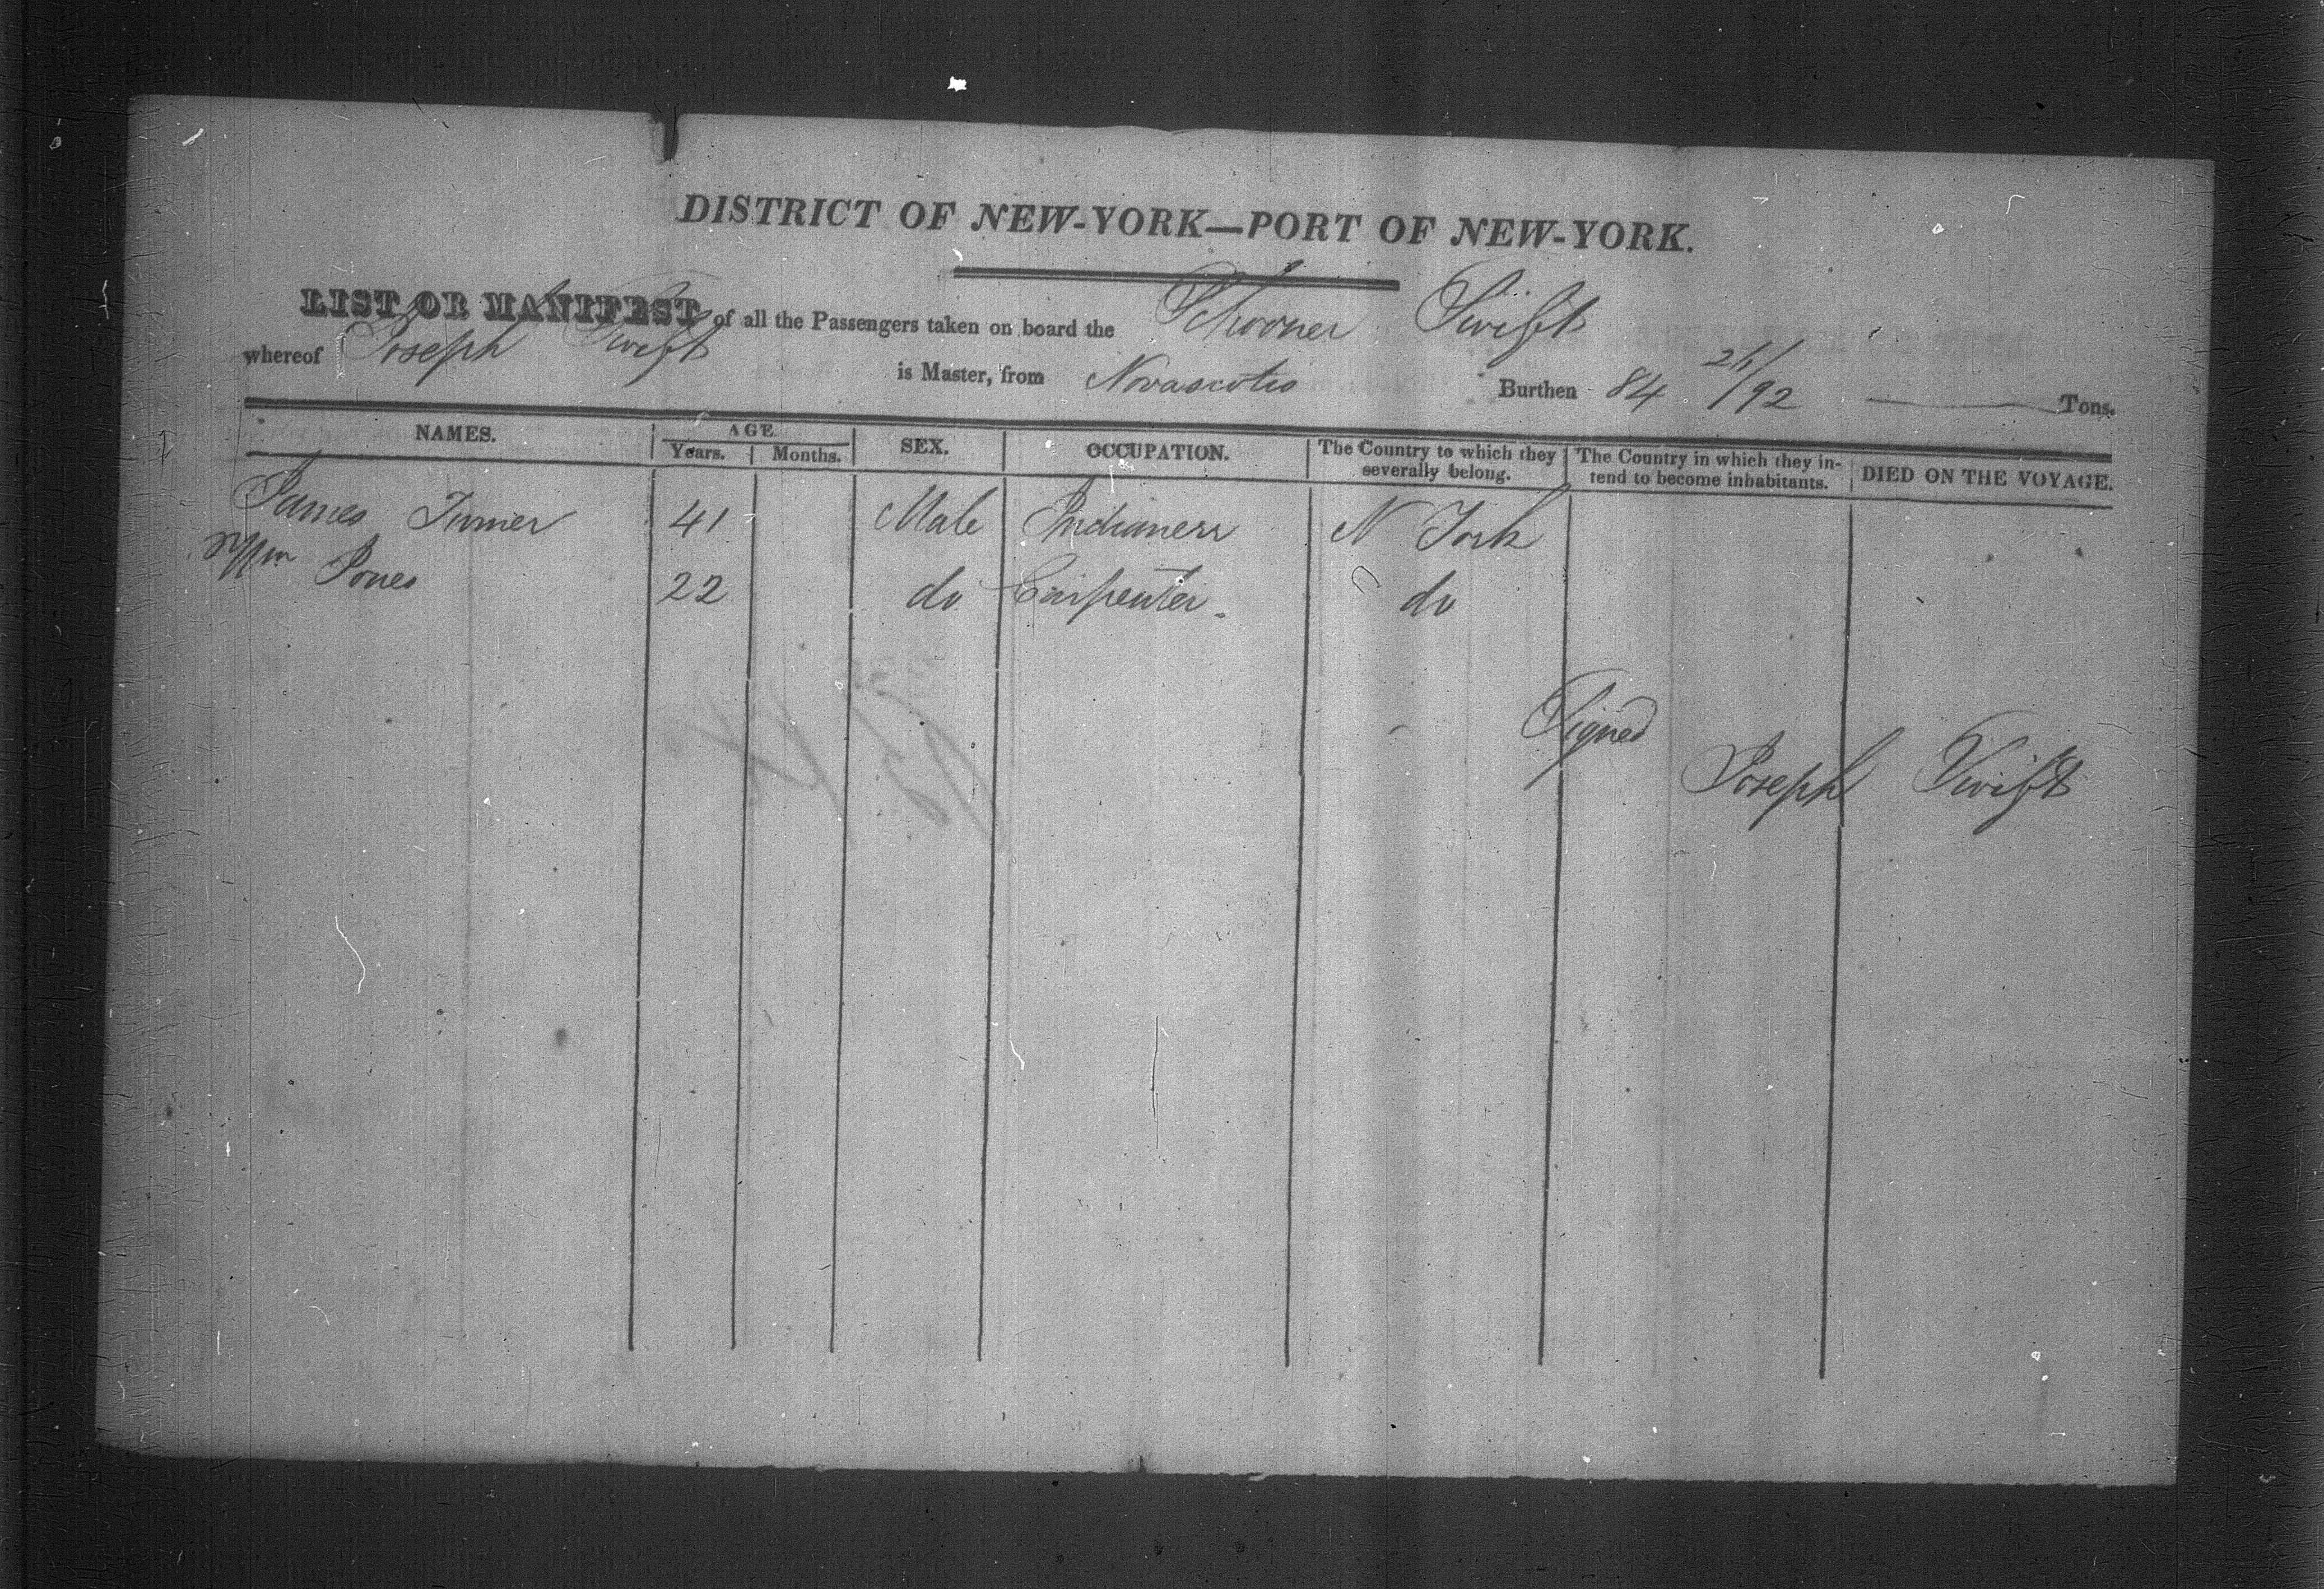 DISTRICT OF NEW-YORK—PORT OF NEW-YORK.
LIST OR MANIFEST of all the Passengers taken on board the Schooner Swift
whereof Joseph Swift is Master, from Novascotia Burthen 84 /92 Tons.
NAMES. AGE Years. Months. SEX. OCCUPATION. The Country to which they severally belong. The Country in which they intend to become inhabitants. DIED ON THE VOYAGE.
James Turner 41 Male N York
Wm Jones 22 do Carpenter do
Signed
Joseph Swift